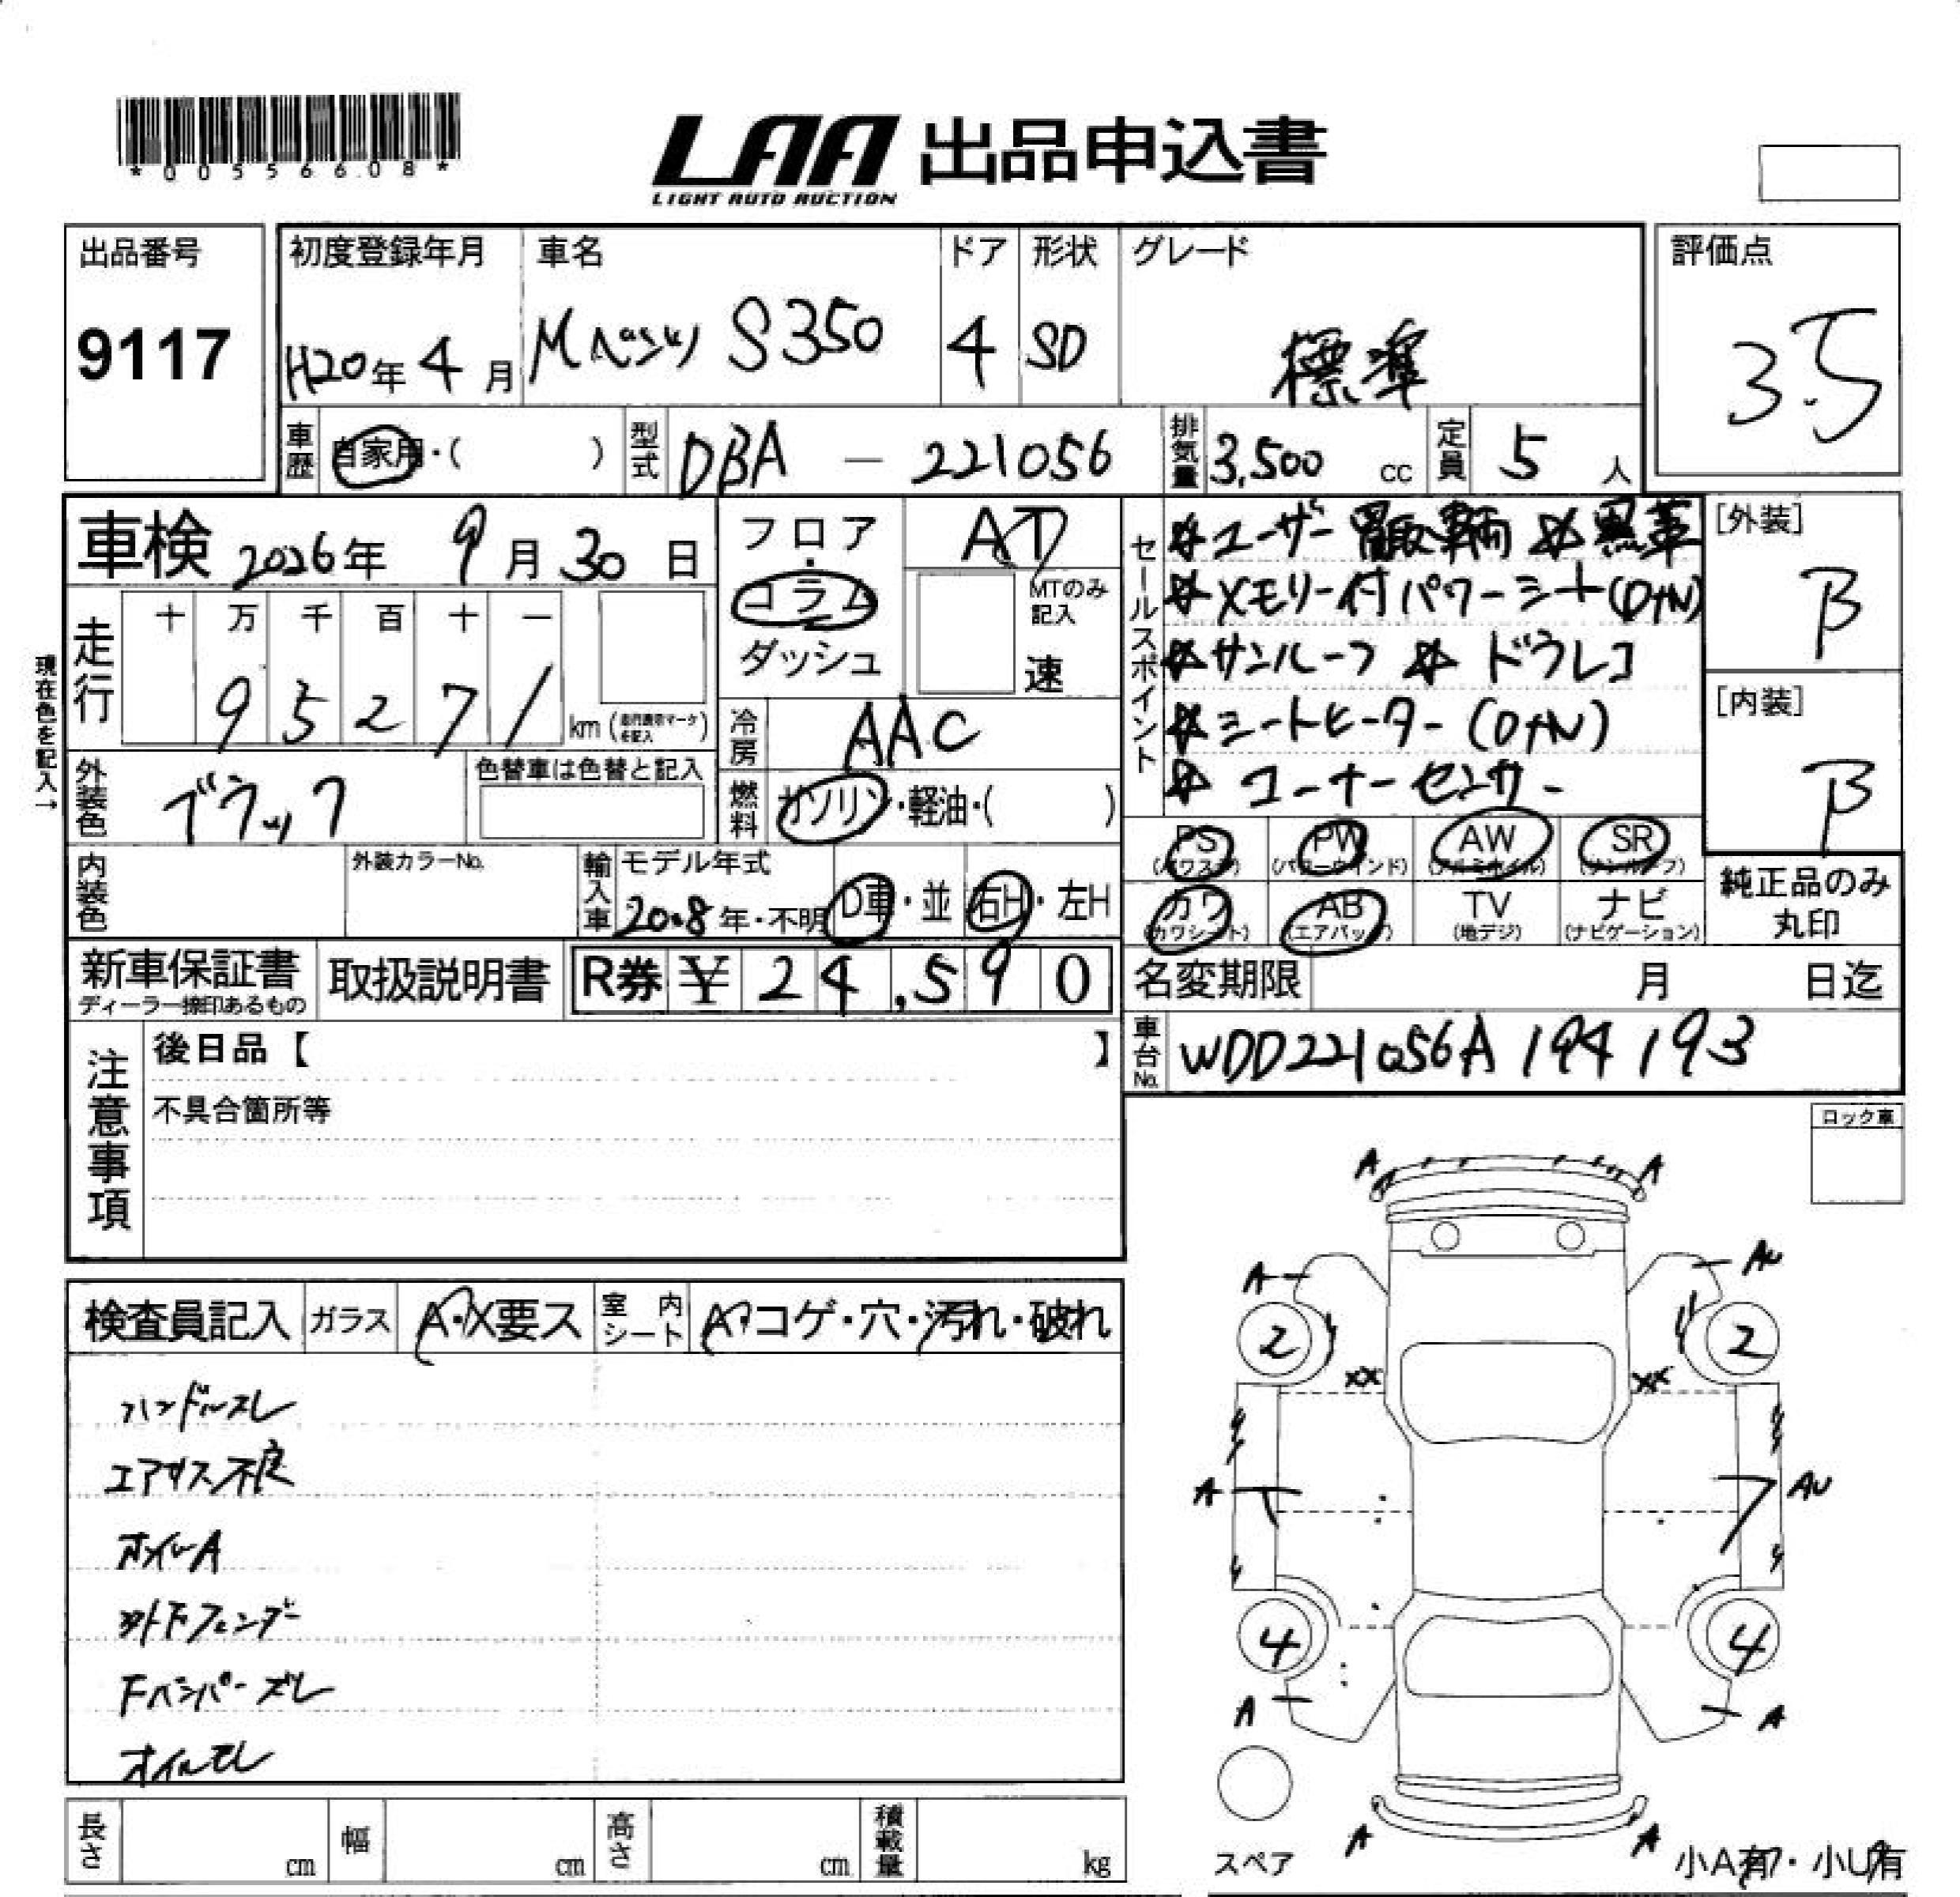 *0055608*
LAA 出品申込書
LIGHT AUTO AUCTION
出品番号
9117
初度登録年月
H20年 4月
車名
Mベンツ S350
ドア
4
形状
SD
グレード
標準
評価点
3.5
車歴
自家用・( )
型式
DBA - 221056
排気量
3,500 cc
定員
5 人
車検 2026年 9月 30日
フロア
・
コラム
・
ダッシュ
AT
MTのみ
記入
速
セールスポイント
☆ユーザー買取車輌 ☆黒革
☆メモリー付パワーシート(D+N)
☆サンルーフ ☆ドラレコ
☆シートヒーター(D+N)
☆コーナーセンサー
[外装]
B
[内装]
B
現在色を記入→
走行
十 万 千 百 十 一
9 5 2 7 1
km (走行表示マークを記入)
冷房
AAC
外装色
ブラック
色替車は色替と記入
燃料
ガソリン・軽油・( )
PS
(パワステ)
PW
(パワーウインド)
AW
(アルミホイル)
SR
(サンルーフ)
カワ
(カワシート)
AB
(エアバッグ)
TV
(地デジ)
ナビ
(ナビゲーション)
純正品のみ
丸印
内装色
外装カラーNo.
輸入車
モデル年式
2008年・不明
D車・並
右H・左H
新車保証書
ディーラー捺印あるもの
取扱説明書
R券 ¥ 24,590
名変期限 月 日迄
車台No.
WDD221056A194193
注意事項
後日品【 】
不具合箇所等
ロック車
検査員記入
ガラス
A・X要ス
室内シート
A・コゲ・穴・汚れ・破れ
ハンドルスレ
エアサス不良
オイルA
外下フェンダー
Fバンパーズレ
オイルモレ
A A
A AU
2 2
XX XX
A AU
4 4
A A
A A
スペア
小A有・小U有
長さ cm
幅 cm
高さ cm
積載量 kg